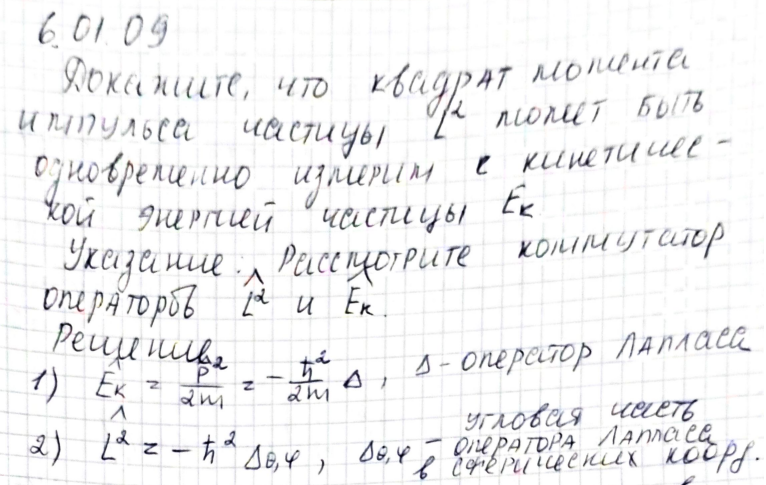 6.01.09
Докажите, что квадрат момента
импульса частицы L² может быть
одновременно измерим с кинетичес-
кой энергией частицы Eк
Указание: Рассмотрите коммутатор
операторов L̂² и Êк.
Решение
1) Êк = p̂²/2m = -ħ²/2m Δ, Δ - оператор Лапласа
2) L̂² = -ħ² Δθ,φ, Δθ,φ - угловая часть
оператора Лапласа
в сферических коорд.